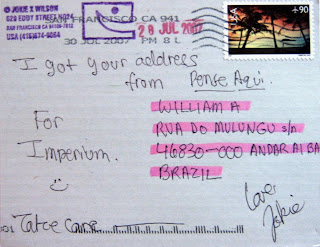 © JOKIE X WILSON
629 EDDY STREET NO24
USA
SAN FRANCISCO CA 941
28 JUL 2007
30 JUL 2007 PM 8 L
USA 90
I got your address
from Pense Aqui.
For
Imperium.
WILLIAM A
RUA DO MULUNGU s/n
46830-000 ANDARAI BA
BRAZIL
Love,
Jokie
Take care